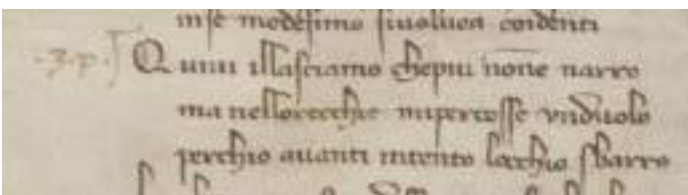 inse medesimo siuoluea condenti
.3.p. Quiui illasciamo chepiu none narro
ma nellorecchie mipercosse vnduolo
perchio auanti intento locchio sbarro